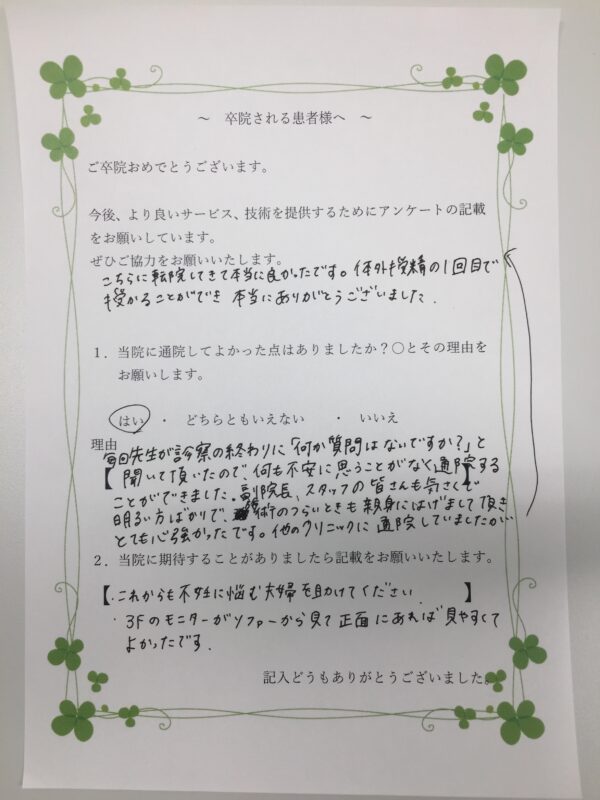 ～ 卒院される患者様へ ～
ご卒院おめでとうございます。
今後、より良いサービス、技術を提供するためにアンケートの記載
をお願いしています。
ぜひご協力をお願いいたします。
こちらに転院してきて本当に良かったです。体外受精の1回目で
授かることができ 本当にありがとうございました.
1．当院に通院してよかった点はありましたか？〇とその理由を
お願いします。
はい ・ どちらともいえない ・ いいえ
理由
毎回先生が診察の終わりに「何か質問はないですか？」と
【 聞いて頂いたので、何も不安に思うことがなく通院する 】
ことができました。副院長、スタッフの皆さんも気さくで
明るい方ばかりで、術のつらいときも親身にはげまして頂き
とても心強かったです。他のクリニックに通院していましたが
2．当院に期待することがありましたら記載をお願いいたします。
【 ・これからも不妊に悩む夫婦を助けてください. 】
・3Fのモニターがソファーから見て正面にあれば見やすくて
よかったです.
記入どうもありがとうございました。